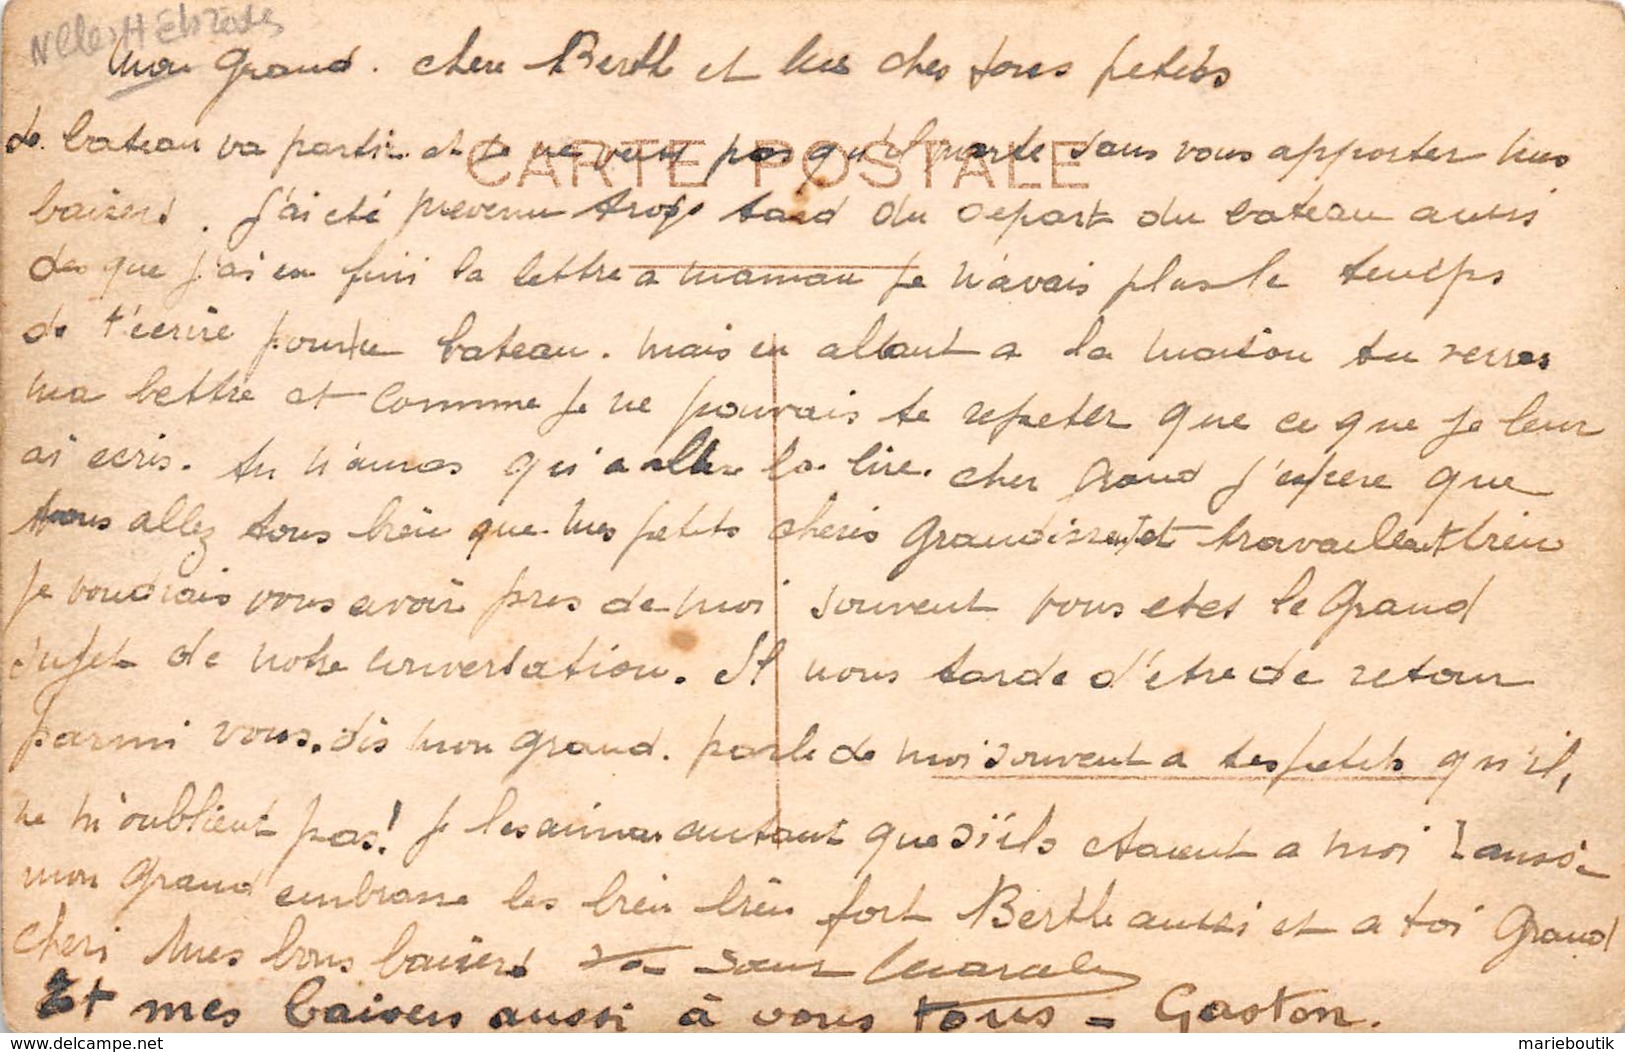 Nlles Hébrides
Mon Grand. chere Berthe et mes chers tous petits
CARTE POSTALE
le bateau va partir et je ne veux pas qu'il parte sans vous apporter mes
baisers. J'ai été prevenu trop tard du depart du bateau aussi
des que j'ai eu fini la lettre a maman je n'avais plus le temps
de t'ecrire pour ce bateau. mais en allant a la maison tu verras
ma lettre et comme je ne pouvais te repeter que ce que je leur
ai ecris. tu n'auras qu'a aller la lire. cher Grand j'espere que
vous allez tous bien que mes petits cheris grandissent et travaillent bien
je voudrais vous avoir pres de moi souvent vous etes le grand
sujet de notre conversation. Il nous tarde d'etre de retour
parmi vous. dis mon grand. parle de moi souvent a tes petits qu'il,
ne m'oublient pas! je les aime autant que s'ils etaient a moi aussi
mon Grand embrasse les bien bien fort Berthe aussi et a toi Grand
cheri mes bons baisers ta soeur
Et mes baisers aussi à vous tous = Gaston.
delcampe.net
marieboutik